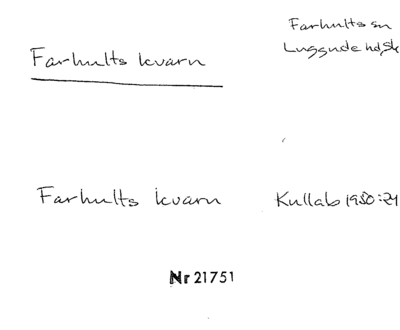 Farhults sn
Luggude hd, Sk
Farhults kvarn
Farhults kvarn
Kullab 1950:24
Nr 21751